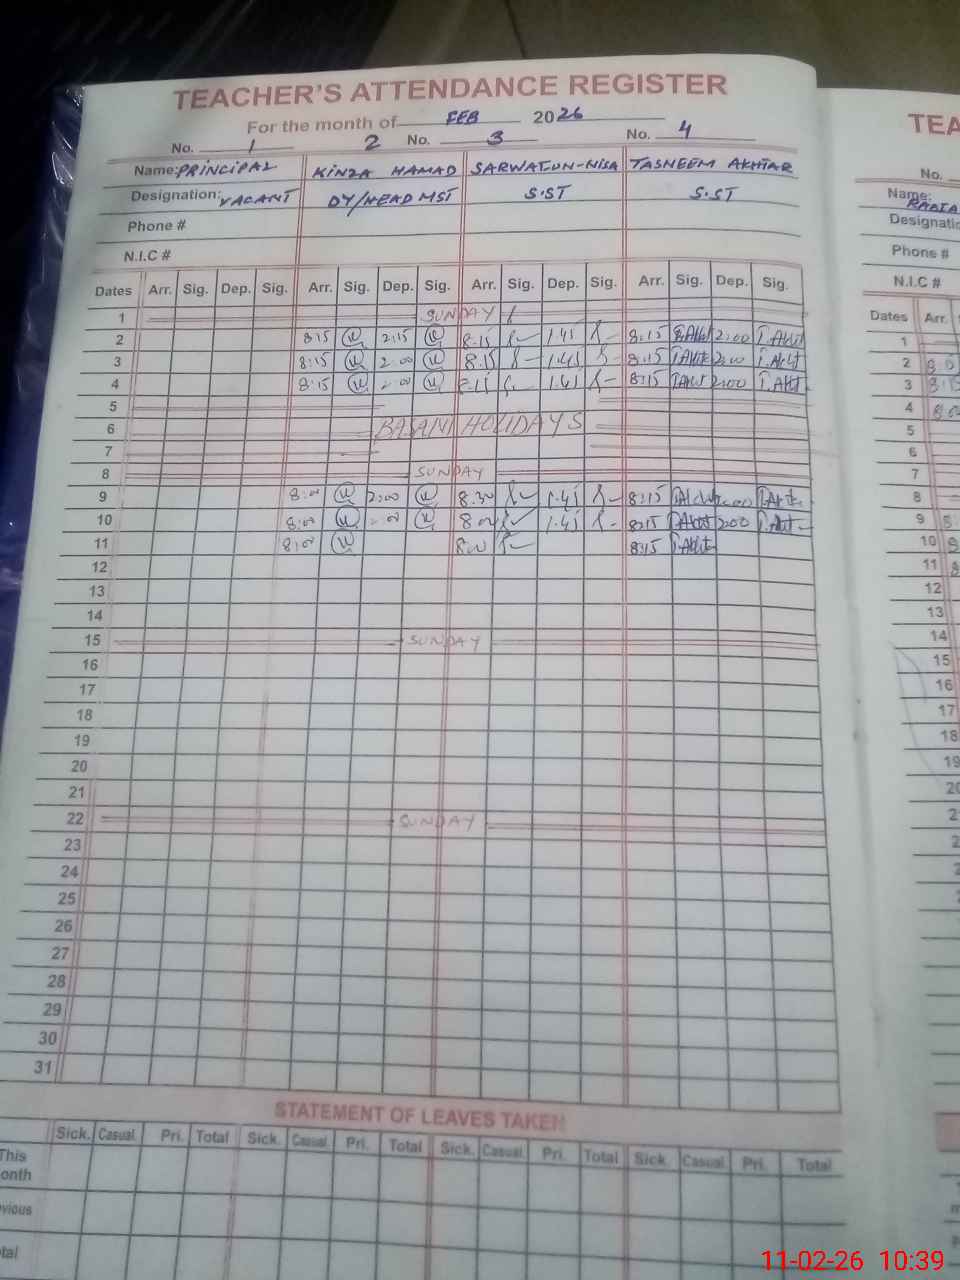 TEACHER'S ATTENDANCE REGISTER
For the month of FEB 2026
No. 1 2 No. 3 No. 4
Name: PRINCIPAL KINZA HAMAD SARWAT-UN-NISA TASNEEM AKHTAR
Designation: VACANT DY/HEAD MST S.ST S.ST
Phone #
N.I.C #
Dates Arr. Sig. Dep. Sig. Arr. Sig. Dep. Sig. Arr. Sig. Dep. Sig. Arr. Sig. Dep. Sig.
1 SUNDAY
2 8:15 2:15 8.15 1.45 8:15 2:00 T.Akht
3 8:15 2:00 8.15 1.45 8:15 T.Akht 2:00 T.Akht
4 8:15 2:00 8.15 1.45 8:15 T.Akht 2:00 T.Akht
5
6 BASANT HOLIDAYS
7
8 SUNDAY
9 8:00 2:00 8.30 1.45 8:15 2:00
10 8:00 2:00 8.00 1.45 8:15 T.Akht 2:00 T.Akht
11 8:00 8.00 8:15 T.Akht
12
13
14
15 SUNDAY
16
17
18
19
20
21
22 SUNDAY
23
24
25
26
27
28
29
30
31
STATEMENT OF LEAVES TAKEN
Sick. Casual. Pri. Total Sick. Casual. Pri. Total Sick. Casual. Pri. Total Sick. Casual. Pri. Total
This
onth
vious
tal
TEA
No.
Name: RABIA
Designatio
Phone #
N.I.C #
Dates Arr.
1
2 8:0
3
4
5
6
7
8
9
10
11
12
13
14
15
16
17
18
19
20
11-02-26 10:39